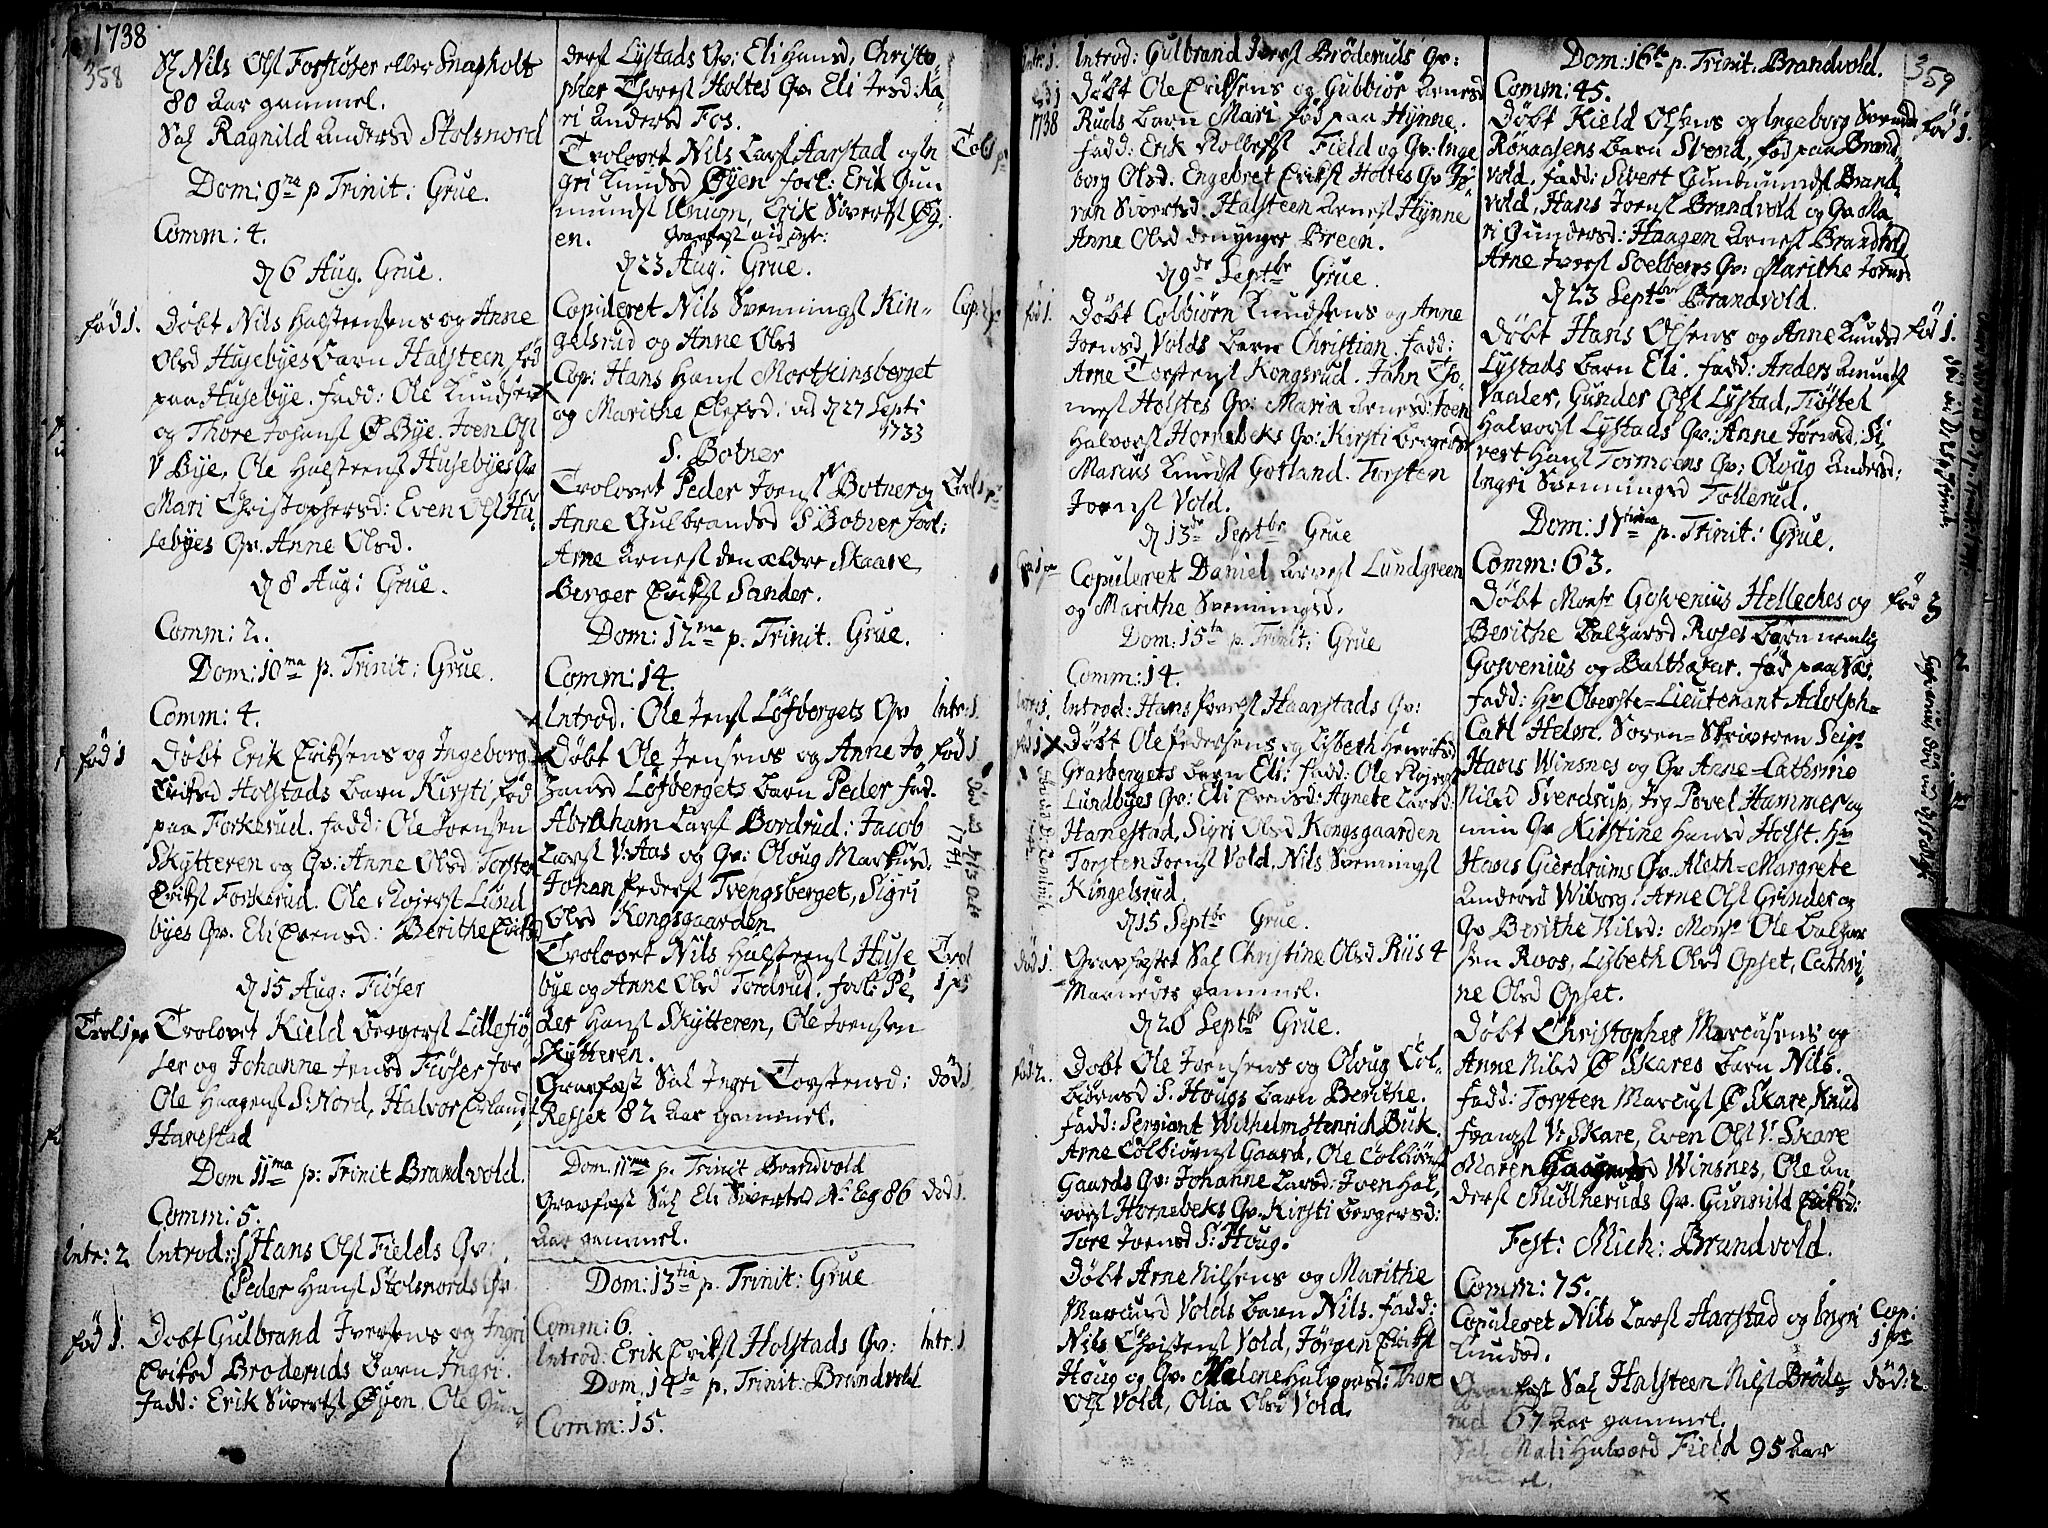 1738
358
Sl Nils Olss Forstøser eller Snapholt
80 aar gammel.
Sal Ragnild Andersd Stolsnord
Dom: 9na p Trinit: Grue.
Comm: 4.
d 6 Aug. Grue.
fød 1.
Døbt Nils Halsteensens og Anne
Olsd Husebyes barn Halsteen, fød
paa Husebye. Fadd: Ole Knudsen
og Thore Johans Ø Bye. Joen Ols
V Bye, Ole Halsteens Husebyes Qv
Mari Christophersd: Even Ols Hu-
sebyes Qv. Anne Olsd.
d 8 Aug: Grue.
Comm: 2.
Dom: 10ma p. Trinit: Grue.
Comm: 4.
fød 1
Døbt Erik Eriksens og Ingeborg
Eriksd Holstads barn Kirsti fød
paa Forkerud. Fadd: Ole Joensen
Skytteren og Qv: Anne Olsd Torsten
Eriks Forkerud. Ole Roiers Lund
byes Qv. Eli Evensd: Berithe Eriksd
d 15 Aug: Fiøser
Trol 1 pr
Trolovet Kield Bergers Lillefiø
ser og Johanne Jensd Fiøser for
Ole Haagens S: Nord, Halvor Erlands
Hanestad
Dom 11ma p: Trinit Brandvold.
Comm: 5.
Intr: 2
Introd: Hans Ols Fields Qv:
Peder Hans Stolsnords Qv
fød 1.
Døbt Gulbrand Iversens og Ingri
Eriksd Broderuds barn Ingri.
Fadd: Erik Siverts Øyen Ole Gun-
ders Lystads Qv: Eli Hansd, Christo,
pher Thores Holtes Qv. Eli Jensd: Ka,
ri Andersd Fos.
Trolovet Nils Lars Aarstad og In
gri Knudsd Øyen forl: Erik Gun
munds Unign, Erik Siverts Øy,
en.
d 23 Aug: Grue.
Copuleret Nils Svennings Kin-
gelsrud og Anne Olsd
Cop: Hans Hans Mortkinsberget
og Marithe Elefsd: ad d 27 Septr
1733
S. Botner
Trolovet Peder Joens N Botner og
Anne Gulbrandsd S Botner forl:
Arne Arnes den ældre Skaare,
Berger Eriks Sander.
Dom: 12ma p. Trinit. Grue.
Comm: 14.
Introd: Ole Jens Løfbergets Qv
Intr: 1.
Døbt Ole Jensens og Anne Jo,
fød 1
hansd Løfbergets barn Peder fad.
Abraham Lars Bordrud: Jacob
Lars V: Aas og Qv: Oloug Markusd.
Johan Peders Tvengsberget, Sigri
Olsd Kongsgaarden
Trolovet Nils Halsteens Huse
Trol
bye og Anne Olsd Tordrud. forl: Pe,
1 pr
der Hans Skytteren, Ole Joensen
Skytteren.
Gravfæst Sal Ingri Torstensd:
død 1
Resset 82 aar gammel.
Dom. 11ma p. Trinit Brandvold
Gravfæst Sal Eli Sivertsd N: Eeg 86
død 1.
aar gammel.
Dom: 13tia p. Trinit: Grue
Comm: 6.
Introd: Erik Eriks Holstads Qv:
Intr: 1
Dom. 14ta p. Trinit: Brandvold
Comm: 15.
Intr: 1.
Introd: Gulbrand Ivers Brøderuds Qv:
Døbt Ole Eriksens og Gubbiør Arnesd
1738
Ruds barn Mari fød paa Hynne.
Fadd: Erik Rollefs Field og Qv: Inge
borg Olsd. Engebret Eriks Holtes Qv Jø,
ran Sivertsd: Halsteen Arnes Hynne
Anne Olsd den yngre Breen.
d 9de Septbr Grue.
fød 1.
Døbt Colbiørn Knudsens og Anne
Joensd Volds barn Christian. Fadd:
Arne Torstens Kongsrud. John Tho-
mes Holstes Qv: Maria Arnesd: Joen
Halvors Hornebeks Qv: Kirsti Bergersd
Marcus Knuds Gotland. Torsten
Joens Vold.
d 13de Septbr Grue
Copuleret Daniel Arves Lundgreen
og Marithe Svenningsd.
Dom: 15ta p. Trinit: Grue
Comm: 14.
Introd: Hans Povels Haarstads Qv:
Døbt Ole Pedersens og Lisbeth Henriksd
Grasbergets barn Eli: Fadd: Ole Roiers
Lundbyes Qv: Eli Evensd: Agnete Larsd:
Hanestad, Sigri Olsd Kongsgaarden
Torsten Joens Vold, Nils Svennings
Kingelsrud.
d 15 Septbr Grue.
død 1.
Gravfæstet Sal Christine Olsd Riis 4
Maaneder gammel.
d 20 Septbr Grue.
fød 2.
Døbt Ole Joensens og Oloug Col-
biørnsd S. Hougs barn Berithe.
Fadd: Sergiant Wilhelm Henrich Buk.
Arne Colbiørns Gaard, Ole Colbiørns
Gaards Qv: Johanne Larsd: Iven Hal,
vors Hornebeks Qv. Kirsti Bergersd:
Tore Joensd S: Houg.
Døbt Arne Nilsens og Marithe
Marcusd Volds barn Nils. Fadd:
Nils Christens Vold, Jørgen Eriks
Houg og Qv. Malene Halvorsd: Thor
Ols Vold, Olia Olsd Vold.
Dom: 16ta p. Trinit. Brandvold.
359
Comm: 45.
Døbt Kield Olsens og Ingeborg Svensd
fød 1.
Rønaasens barn Svend, fød paa Brand,
vold. Fadd: Sivert Gunmunds Brand,
vold, Hans Joens Brandvold og Qv Ma
ri Gundersd: Haagen Arnes Brandvold
Arne Ivers Soelbergs Qv: Marithe Joensd
d 23 Septbr Brandvold.
Døbt Hans Olsens og Anne Knudsd
fød 1.
Lystads barn Eli. Fadd: Anders Amunds
Vaaler, Gunder Ols Lystad, Tiøstel
Halvors Lystads Qv: Anne Jørnsd. Si
vert Hans Tormoens Qv: Oloug Andersd:
Ingri Svenningsd Tollerud.
Dom: 17tima p. Trinit: Grue.
Comm: 63.
Døbt Monsr Gosvenius Helleches og
fød 3
Berithe Balzarsd Roses børn nemlig
Gosvenius og Balthazar. fød paa Næs.
Fadd: Hr Oberste-Lieutenant Adolph-
Carl Helm. Soren-Skriveren Seigr
Hans Winsnes og Qv Anne-Cathrine
Nilsd Sverdrup, Jeg Povel Hammer og
min Qv Kirstine Hansd Holst. Hr
Hans Gierdrums Qv. Aleth-Margrete
Andersd Wiborg: Arne Ols Grinder og
Qv Berithe Nilsd: Monsr Ole Balzar
sen Roos, Lisbeth Olsd Opset, Cathri,
ne Olsd Opset.
Døbt Christopher Marcusens og
Anne Nilsd Ø Skares barn Nils.
Fadd: Torsten Marcus Ø Skare Knud
Frans V: Skare, Even Ols V. Skare
Maren Haagensd Winsnes, Ole An,
ders Mudtneruds Qv. Gunnild Eriksd:
Fest: Mich: Brandvold.
Comm: 75.
Copuleret Nils Lars Aarstad og Ingri
Cop:
Knudsd.
1 pr
Gravfæst Sal Halsteen Nils Brøde-
død: 2.
rud 67 aar gammel.
Sal Mali Halvorsd Field 95 aar
gammel.